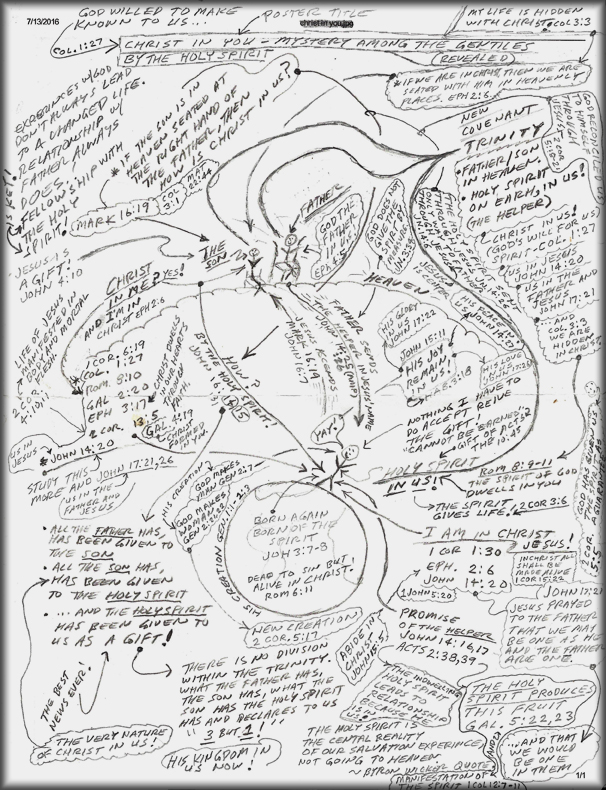 7/13/2016
christ in you.jpg
GOD WILLED TO MAKE
KNOWN TO US...
POSTER TITLE
MY LIFE IS HIDDEN
WITH CHRIST. COL 3:3
COL. 1:27
CHRIST IN YOU - MYSTERY AMONG THE GENTILES
(REVEALED)
BY THE HOLY SPIRIT
* IF WE ARE IN CHRIST, THEN WE ARE
SEATED WITH HIM IN HEAVENLY
PLACES. EPH 2:6
EXPERIENCES W/GOD
DON'T ALWAYS LEAD
TO A CHANGED LIFE.
• RELATIONSHIP W/
FATHER ALWAYS
DOES.
• FELLOWSHIP WITH
THE HOLY
SPIRIT.
IS KEY!
* IF THE SON IS IN
HEAVEN SEATED AT
THE RIGHT HAND OF
THE FATHER, THEN
HOW IS
CHRIST IN US?
MARK 16:19
COL 3:1
NEW
COVENANT
TRINITY
• FATHER/SON
IN HEAVEN.
• HOLY SPIRIT
ON EARTH, IN US!
(THE HELPER)
CHRIST IN US!
(GOD'S WILL FOR US)
SPIRIT-COL. 1:27
US IN JESUS
JOHN 14:20
US IN THE
FATHER AND
JESUS
JOHN 17:21
...AND
COL 3:3
WE ARE
HIDDEN
IN CHRIST
FATHER
THE
SON
GOD THE
FATHER
IN US!
EPH. 4:6
HEAVEN
JESUS IS
A GIFT!
JOHN 4:10
CHRIST
IN ME? YES!
AND I'M IN
CHRIST EPH 2:6
LIFE OF JESUS
MANIFESTED IN
OUR MORTAL
FLESH.
2 COR.
4:10,11
2 COR. 6:19
COL. 1:27
ROM. 8:10
GAL 2:20
EPH 3:17
2 COR. 13:5
GAL 4:19
CHRIST DWELLS
IN OUR HEARTS
THROUGH
FAITH.
US IN
JESUS
* JOHN 14:20
STUDY THIS
MORE AND JOHN 17:21,26
US IN THE
FATHER AND
JESUS
HOW?
BY THE HOLY SPIRIT!
JESUS ASCENDS
MARK 16:19
JOHN 16:7
FATHER SENDS
THE HELPER IN JESUS'
HIS GLORY
IN US
JOHN 17:22
JOHN 15:11
HIS JOY
REMAIN
IN US!
HIS PEACE!
JOHN 14:27
HIS LOVE
NOTHING I HAVE TO
DO ACCEPT REIVE
THE GIFT!
"CANNOT BE EARNED"
GIFT OF ACTS 2
THE 10:45
YAY!
HOLY SPIRIT
IN US!
ROM 8:9-11
THE SPIRIT OF GOD
DWELLS IN YOU
• THE SPIRIT
GIVES LIFE. 2 COR 3:6
HIS CREATION
GOD MAKES
MAN GEN 2:7
GOD MAKES
WOMAN
GEN 2:22
HIS CREATION GEN. 1:1-2:3
BORN AGAIN
BORN OF THE
SPIRIT
JOH 3:7-8
DEAD TO SIN BUT
ALIVE IN CHRIST.
ROM 6:11
NEW CREATION
2 COR. 5:17
I AM IN CHRIST
JESUS!
1 COR 1:30
EPH. 2:6
JOHN 14:20
1 JOHN 5:20
IN CHRIST ALL
SHALL BE
MADE ALIVE
1 COR 15:22
JOHN 17:21
JESUS PRAYED
TO THE FATHER
THAT WE MAY
BE ONE AS HE
AND THE FATHER
ARE ONE.
• ALL THE FATHER HAS,
HAS BEEN GIVEN TO
THE SON
• ALL THE SON HAS,
HAS BEEN GIVEN
TO THE HOLY SPIRIT
• ... AND THE HOLY SPIRIT
HAS BEEN GIVEN TO
US AS A GIFT!
THE BEST
NEWS EVER!
THE VERY NATURE
OF CHRIST IN US!
THERE IS NO DIVISION
WITHIN THE TRINITY.
WHAT THE FATHER HAS,
THE SON HAS, WHAT THE
SON HAS THE HOLY SPIRIT
HAS AND DECLARES TO US
"3 BUT 1!"
HIS KINGDOM IN
US NOW!
ABIDE IN
CHRIST
JOHN 15:5
PROMISE
OF THE HELPER
JOHN 14:16,17
ACTS 2:38,39
THE INDWELLING
HOLY SPIRIT
LEADS TO
RELATIONSHIP
BECAUSE HE
IS
THE HOLY SPIRIT IS
THE CENTAL REALITY
OF OUR SALVATION EXPERIENCE
NOT GOING TO HEAVEN
~ BYRON WICKER QUOTE
THE HOLY
SPIRIT PRODUCES
THIS FRUIT
GAL. 5:22,23
...AND THAT
WE WOULD
BE ONE
IN THEM
MANIFESTATION OF
THE SPIRIT 1 COR 12:7-11
1/1